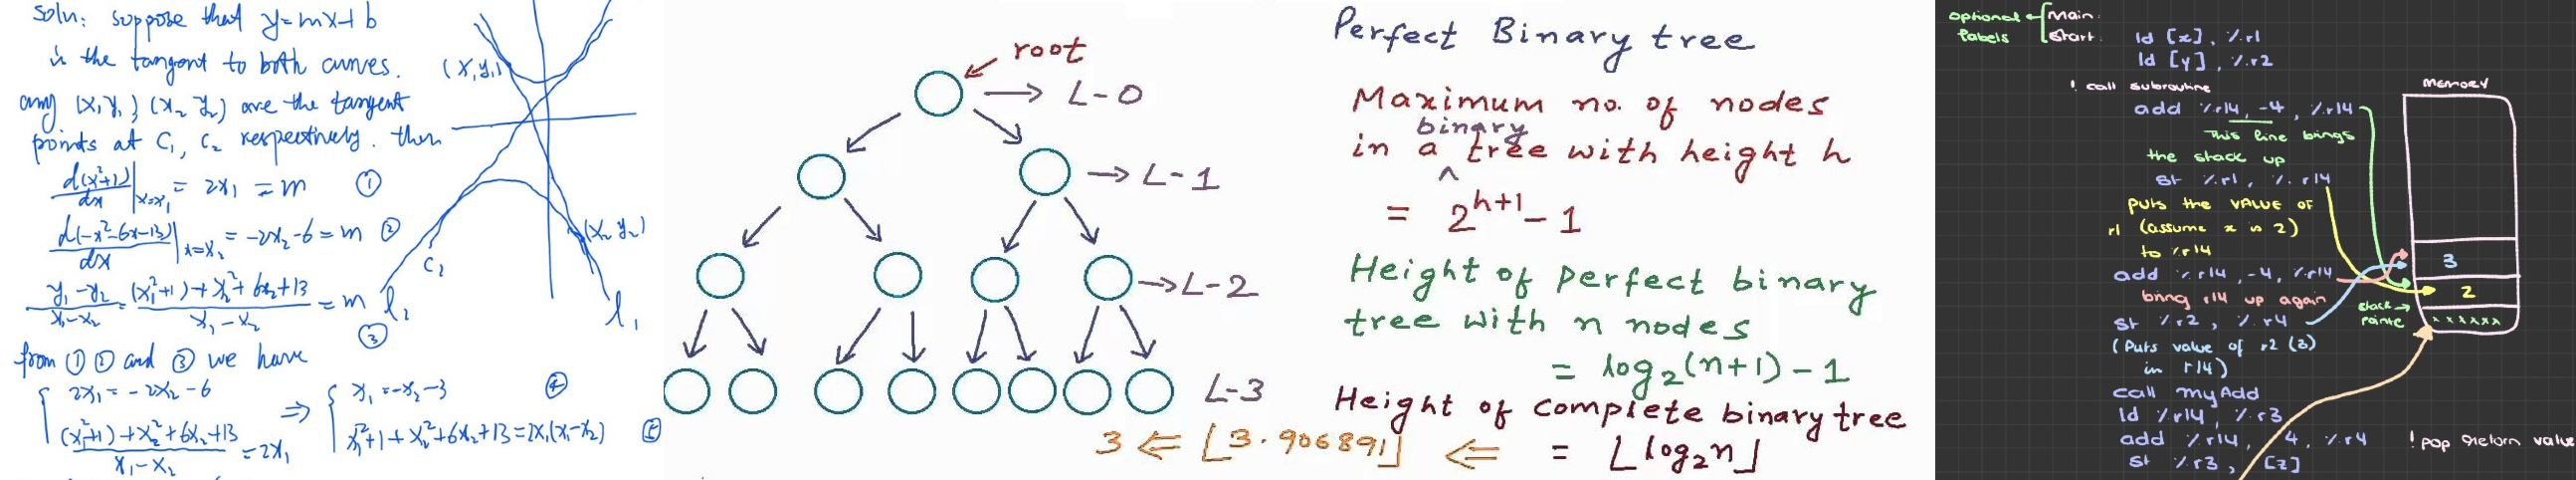 soln: suppose that y=mx+b
is the tangent to both curves.
any (x₁y₁) (x₂ y₂) are the tangent
points at C₁, C₂ respectively. then
d(x²+1)/dx |x=x₁ = 2x₁ = m ①
d(-x²-6x-13)/dx |x=x₂ = -2x₂-6 = m ②
y₁-y₂/x₁-x₂ = (x₁²+1)+x₂²+6x₂+13/x₁-x₂ = m
③
from ① ② and ③ we have
2x₁ = -2x₂-6
(x₁²+1)+x₂²+6x₂+13/x₁-x₂ = 2x₁
⇒ x₁ = -x₂-3 ④
x₁²+1+x₂²+6x₂+13=2x₁(x₁-x₂) ⑤
(x₁y₁)
(x₂ y₂)
C₂
l₂
l₁
root
L-0
L-1
L-2
L-3
Perfect Binary tree
Maximum no. of nodes
in a binary tree with height h
= 2^(h+1) - 1
Height of perfect binary
tree with n nodes
= log₂(n+1) - 1
Height of complete binary tree
3 ⇐ ⌊3.906891⌋ ⇐ = ⌊log₂n⌋
optional
labels
main
start
ld [x], %r1
ld [y], %r2
! call subroutine
add %r14, -4, %r14
This line brings
the stack up
st %r1, %r14
puts the VALUE OF
r1 (assume x is 2)
to %r14
add %r14, -4, %r14
bring r14 up again
st %r2, %r4
(Puts value of r2 (3)
in r14)
call myAdd
ld %r14, %r3
add %r14, 4, %r4 ! pop return value
st %r3, [z]
memory
3
2
stack
pointe
xxxxxx